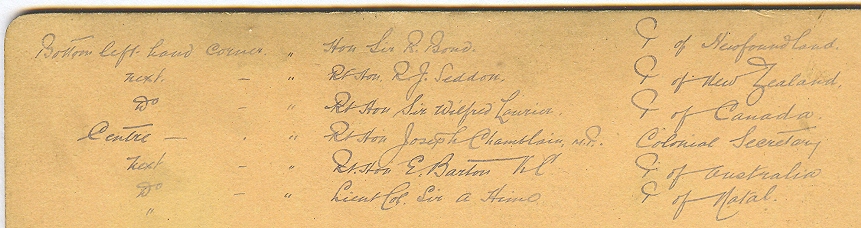 Bottom left hand corner. " Hon Sir R. Bond. P of Newfoundland.
next. – " Rt Hon. R. J. Seddon. P of New Zealand.
Do – " Rt Hon Sir Wilfred Laurier. P of Canada.
Centre – . " Rt Hon Joseph Chamblain, M.P. Colonial Secretary
next – " Rt. Hon E. Barton K.C P of Australia
Do – " Lieut Col. Sir A Hime P of Natal.
"